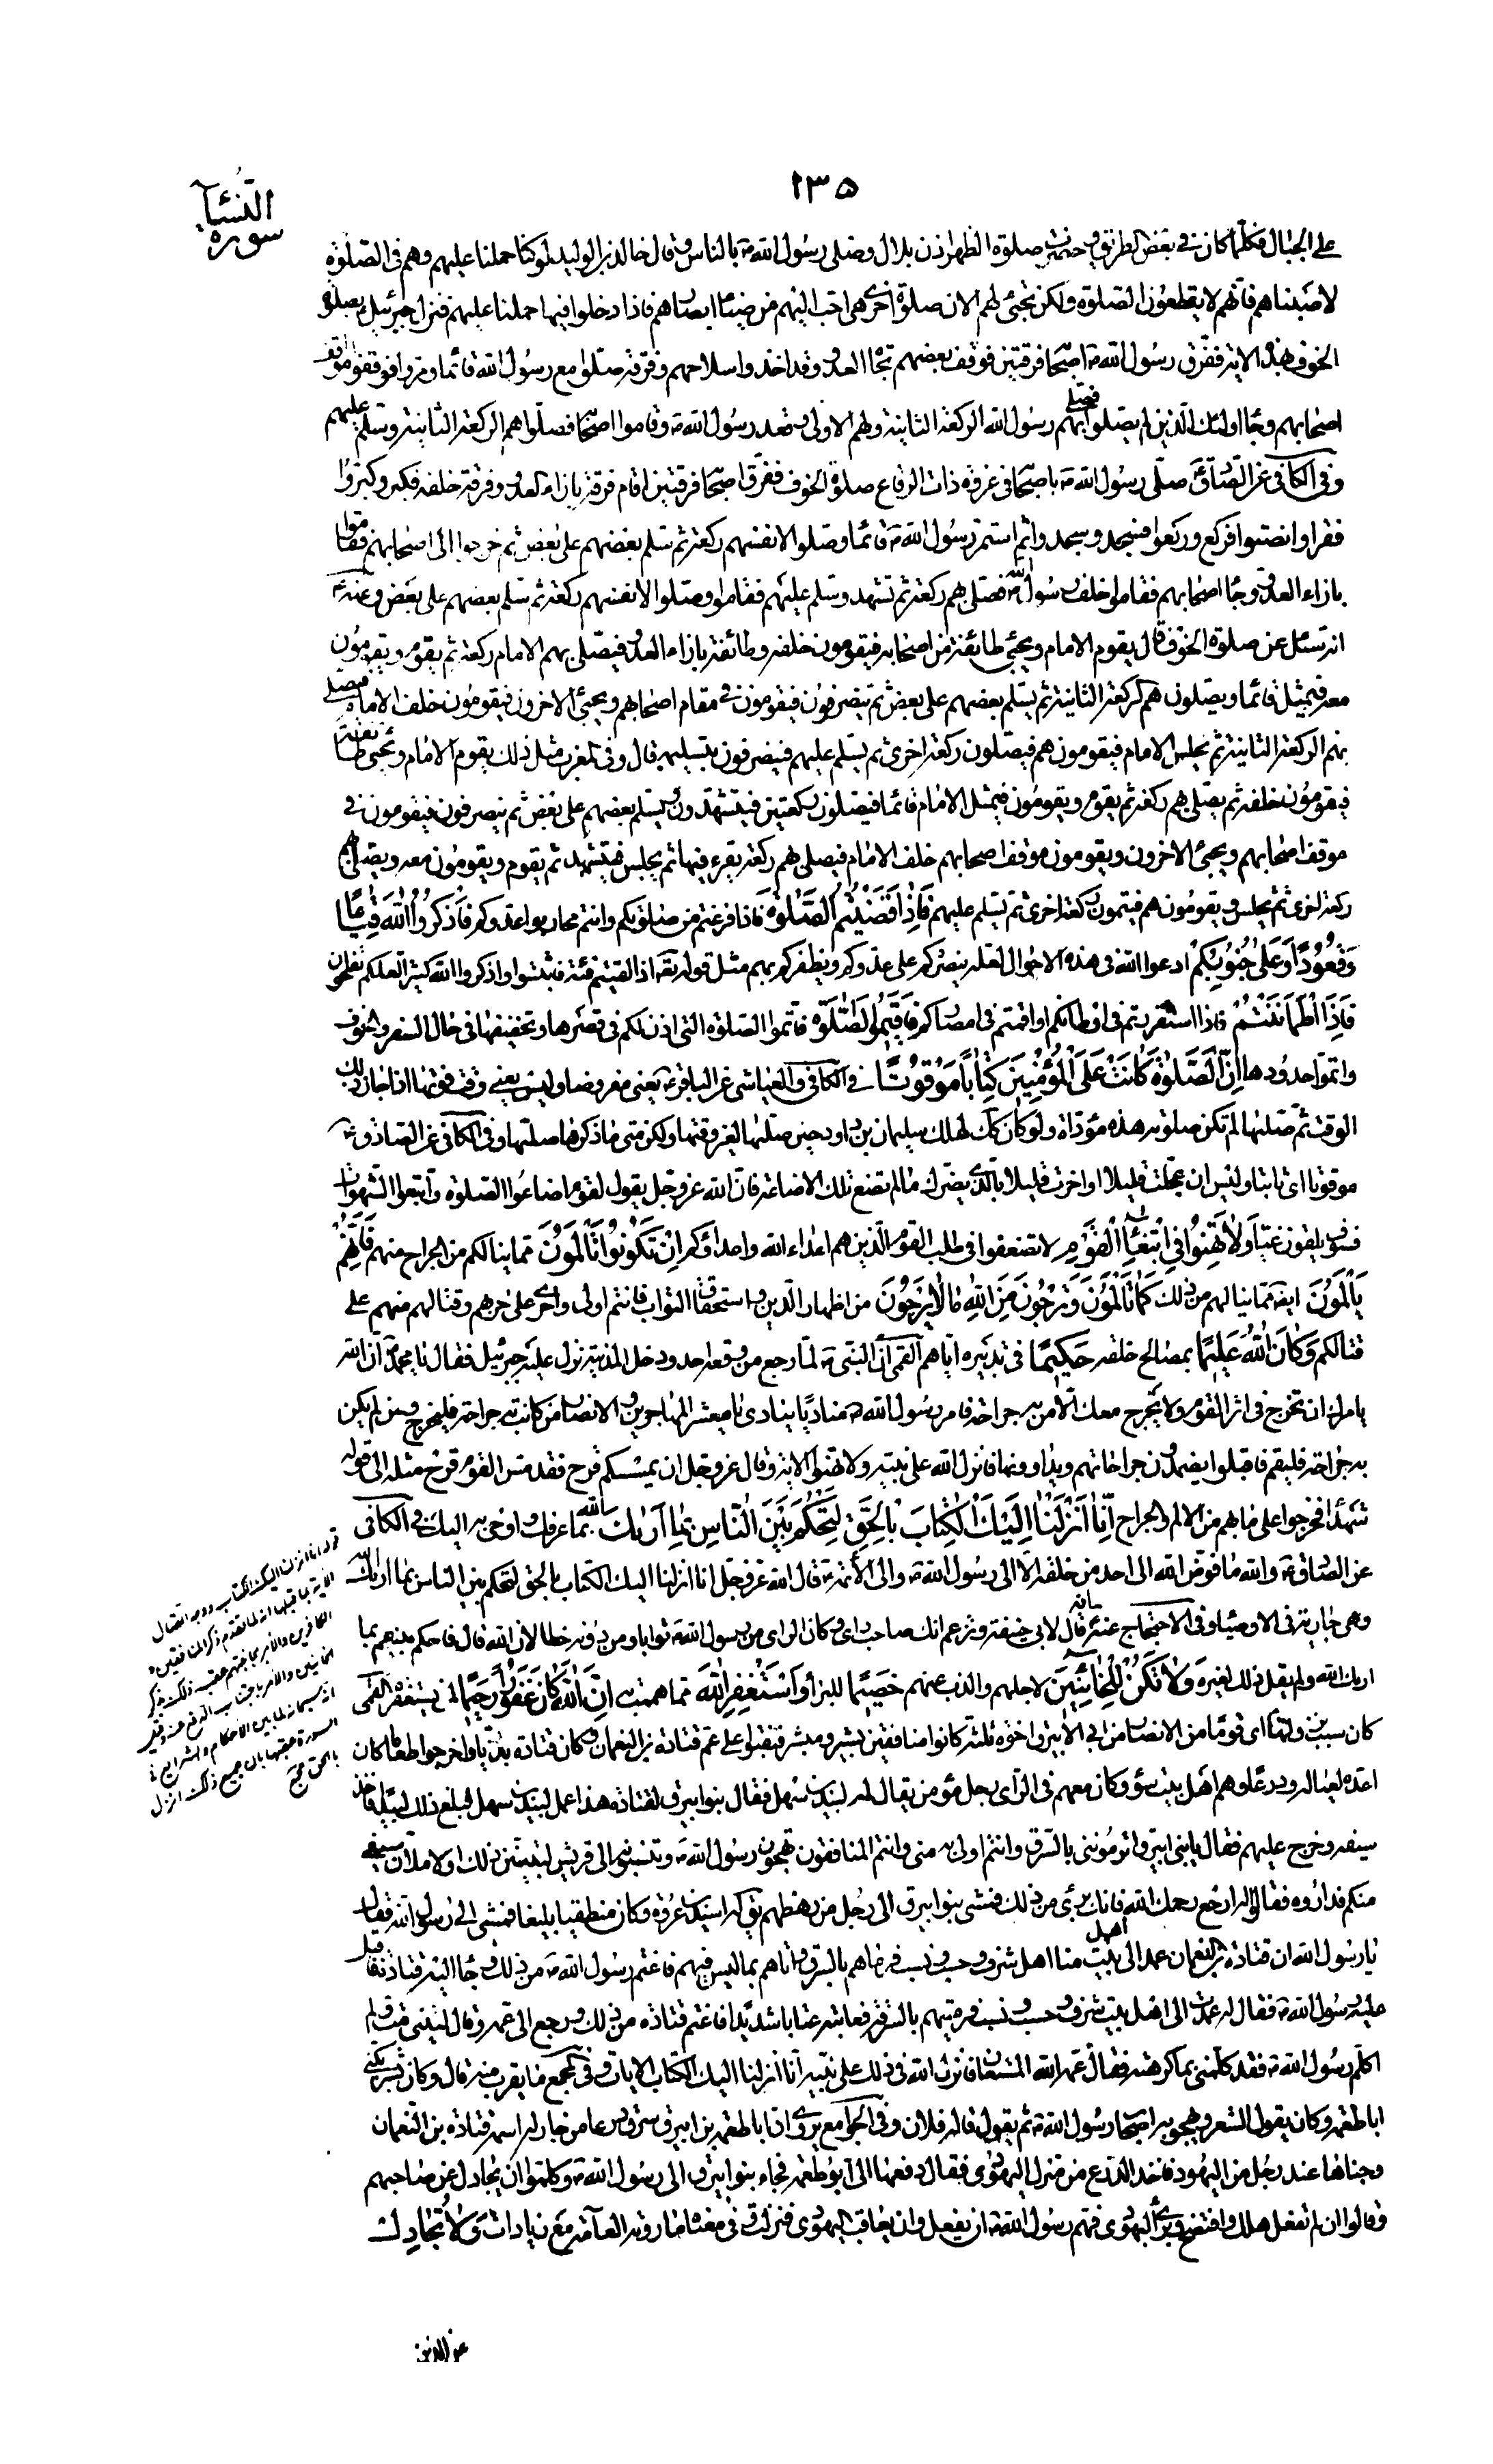 ١٣٥
النسآء
سورة
على الجبال فكلما كان في بعض الطريق وحضرت صلوة الظهر اذن بلال وصلى رسول الله ص بالناس وقال خالد بن الوليد لو كنا حملنا عليهم وهم في الصلوة
لاصبناهم فانهم لا يقطعون الصلوة ولكن تجئ لهم الان صلوة اخرى هي احب اليهم من ضياء ابصارهم فاذا دخلوا فيها حملنا عليهم فنزل جبرئيل بصلوة
الخوف بهذه الاية ففرق رسول الله ص اصحابه فرقتين فوقف بعضهم تجاه العدو وقد اخذوا سلاحهم وفرقة صلوا مع رسول الله قائما ومروا فوقفوا مواقف
اصحابهم وجاء اولئك الذين لم يصلوا فصلى بهم رسول الله الركعة الثانية ولهم الاولى وقعد رسول الله ص وقاموا اصحابه فصلوا هم الركعة الثانية وسلم عليهم
وفي الكافي عن الصادق صلى رسول الله ص باصحابه في غزوة ذات الرقاع صلوة الخوف ففرق اصحابه فرقتين اقام فرقة بازاء العدو وفرقة خلفه فكبر وكبروا
فقرا وانصتوا فركع وركعوا فسجد وسجدوا ثم استمر رسول الله ص قائما وصلوا لانفسهم ركعة ثم سلم بعضهم على بعض ثم خرجوا الى اصحابهم فقاموا
بازاء العدو وجاء اصحابهم فقاموا خلف رسول الله ص فصلى بهم ركعة ثم تشهد وسلم عليهم فقاموا وصلوا لانفسهم ركعة ثم سلم بعضهم على بعض وعنه ع
انه سئل عن صلوة الخوف قال يقوم الامام ويجئ طائفة من اصحابه فيقومون خلفه وطائفة بازاء العدو فيصلى بهم الامام ركعة ثم يقوم ويقومون
معه فيمثل قائما ويصلون هم الركعة الثانية ثم يسلم بعضهم على بعض ثم ينصرفون فيقومون في مقام اصحابهم ويجئ الاخرون فيقومون خلف الامام فيصلى
بهم الركعة الثانية ثم يجلس الامام فيقومون هم فيصلون ركعة اخرى ثم يسلم عليهم فينصرفون بتسليمه قال وفي المغرب مثل ذلك يقوم الامام وتجئ طائفة
فيقومون خلفه ثم يصلى بهم ركعة ثم يقوم ويقومون فيمثل الامام قائما فيصلون ركعتين فيتشهدون ويسلم بعضهم على بعض ثم ينصرفون فيقومون في
موقف اصحابهم ويجئ الاخرون ويقومون موقف اصحابهم خلف الامام فيصلى بهم ركعة يقرء فيها ثم يجلس فيتشهد ثم يقوم ويقومون معه ويصلى بهم
ركعة اخرى ثم يجلس ويقومون هم فيتمون ركعة اخرى ثم يسلم عليهم فَاِذا قَضَيْتُمُ الصَّلٰوةَ فاذا فرغتم من صلوتكم وانتم محاربوا عدوكم فَاذْكُرُوا اللهَ قِياماً
وَقُعُوداً وَعَلىٰ جُنُوبِكُمْ ادعوا الله في هذه الاحوال لعله ينصركم على عدوكم ويظفركم بهم مثل قوله تعه اذا لقيتم فئة فاثبتوا واذكروا الله كثيرا لعلكم تفلحون
فَاِذَا اطْمَأنَنْتُمْ فاذا استقررتم في اوطانكم او اقمتم في امصاركم فَاَقِيمُوا الصَّلٰوةَ فاتموا الصلوة التي اذن لكم في قصرها وتخفيفها في حال السفر والخوف
واتموا حدودها اِنَّ الصَّلٰوةَ كانَتْ عَلَى الْمُؤْمِنِينَ كِتاباً مَوْقُوتاً في الكافي والعياشي عن الباقر ع يعني مفروضا وليس يعني وقت فوتها اذا جاز ذلك
الوقت ثم صليها لم تكن صلوته هذه مؤداة ولو كان كك لهلك سليمان بن داود حين صليها لغير وقتها ولكن متى ما ذكرها صليها وفي الكافي عن الصادق ع
موقوتا اي ثابتا وليس ان عجلت قليلا او اخرت قليلا بالذي يضرك ما لم تضع تلك الاضاعة فان الله عز وجل يقول لقوم اضاعوا الصلوة واتبعوا الشهوات
فسوف يلقون غيا وَلا تَهِنُوا فِي ابْتِغاءِ الْقَوْمِ لا تضعفوا في طلب القوم الذين هم اعداء الله واعداؤكم اِنْ تَكُونُوا تَأْلَمُونَ مما ينالكم من الجراح منهم فَاِنَّهُمْ
يَأْلَمُونَ ايضا مما ينالهم من ذلك كَما تَأْلَمُونَ وَتَرْجُونَ مِنَ اللهِ ما لا يَرْجُونَ من اظهار الدين واستحقاق الثواب فانتم اولى واحرى على حربهم وقتالهم منهم على
قتالكم وَكانَ اللهُ عَلِيماً بمصالح خلقه حَكِيماً في تدبيره اياهم القمي ان النبي ص لما رجع من وقعة احد ودخل المدينة نزل عليه جبرئيل فقال يا محمد ان الله
يامرك ان تخرج في اثر القوم ولا يخرج معك الا من به جراحة فامر رسول الله ص مناديا ينادي يا معشر المهاجرين والانصار من كانت به جراحة فليخرج ومن لم يكن
به جراحة فليقم فاقبلوا يضمدون جراحاتهم ويداوونها فانزل الله على نبيه ولا تهنوا الاية وقال عز وجل ان يمسسكم قرح فقد مس القوم قرح مثله الى قوله
شهداء فخرجوا على ما بهم من الالم والجراح اِنّا اَنْزَلْنا اِلَيْكَ الْكِتابَ بِالْحَقِّ لِتَحْكُمَ بَيْنَ النّاسِ بِما اَراكَ اللهُ بما عرفك واوحى به اليك في الكافي
عن الصادق ع والله ما فوض الله الى احد من خلقه الا الى رسول الله ص والى الائمة ع قال الله عز وجل انا انزلنا اليك الكتاب بالحق لتحكم بين الناس بما اراك الله
وهي جارية في الاوصياء وفي الاحتجاج عنه ع قال لابي حنيفة وتزعم انك صاحب راى وكان الراى من رسول الله ص صوابا ومن دونه خطا لان الله قال فاحكم بينهم بما
اريك الله ولم يقل ذلك لغيره وَلا تَكُنْ لِلْخائِنِينَ لاجلهم والذب عنهم خَصِيماً للبراء وَاسْتَغْفِرِ اللهَ مما هممت به اِنَّ اللهَ كانَ غَفُوراً رَحِيماً لمن يستغفره القمي
كان سبب نزولها ان قوما من الانصار من بني ابيرق اخوة ثلثة كانوا منافقين بشير ومبشر فنقبوا على عم قتادة بن النعمان وكان قتادة بدريا واخرجوا طعاما كان
اعده لعياله ودرعا وهم اهل بيت سوء وكان معهم في الراى رجل مؤمن يقال له لبيد بن سهل فقال بنو ابيرق لقتادة هذا عمل لبيد بن سهل فبلغ ذلك لبيدا فاخذ
سيفه وخرج عليهم فقال يا بني ابيرق اترمونني بالسرق وانتم اولى به مني وانتم المنافقون تهجون رسول الله ص وتنسبونه الى قريش لتبينن ذلك او لاملأن سيفي
منكم فداروه فقالوا له ارجع رحمك الله فانك برئ من ذلك فمشى بنو ابيرق الى رجل من رهطهم يق له اسيد بن عروة وكان منطقيا بليغا فمشى الى رسول الله فقال
يا رسول الله ان قتادة بن النعمان عمد الى اهل بيت منا اهل شرف وحسب ونسب فرماهم بالسرق واتاهم بما ليس فيهم فاغتم رسول الله ص من ذلك وجاء اليه قتادة فاقبل
عليه رسول الله ص فقال له عمدت الى اهل بيت شرف وحسب ونسب فرميتهم بالسرقة فعاتبه عتابا شديدا فاغتم قتادة من ذلك ورجع الى عمه وقال ليتني مت ولم
اكلم رسول الله ص فقد كلمني بما كرهته فقال عمه الله المستعان فانزل الله في ذلك على نبيه انا انزلنا اليك الكتاب الايات وفي المجمع ما يقرب منه قال وكان بشير يكنى
ابا طعمة وكان يقول الشعر ويهجو به اصحاب رسول الله ص ثم يقول قاله فلان وفي الجوامع يروى ان ابا طعمة بن ابيرق سرق درعا من جار له اسمه قتادة بن النعمان
وخباها عند رجل من اليهود فاخذ الدرع من منزل اليهودي فقال دفعها الي ابو طعمة فجاء بنو ابيرق الى رسول الله ص وكلموه ان يجادل عن صاحبهم
وقالوا ان لم تفعل هلك وافتضح وبرئ اليهودي فهم رسول الله ص ان يفعل وان يعاقب اليهودي فنزلت وفي معناه ما روته العامة مع زيادات وَلا تُجادِلْ
قوله انا انزلنا اليك الكتاب ووجه اتصال
الاية بما قبلها انه لما تقدم ذكر المنافقين و
الكافرين والامر بمجانبتهم عقب ذلك بذكر
الخائنين والامر باجتناب الدفع عنهم وقيل
انه سبحانه لما بين الاحكام والشرايع في
السورة عقبها بان جميع ذلك انزل
بالحق مجمع
عن الذين